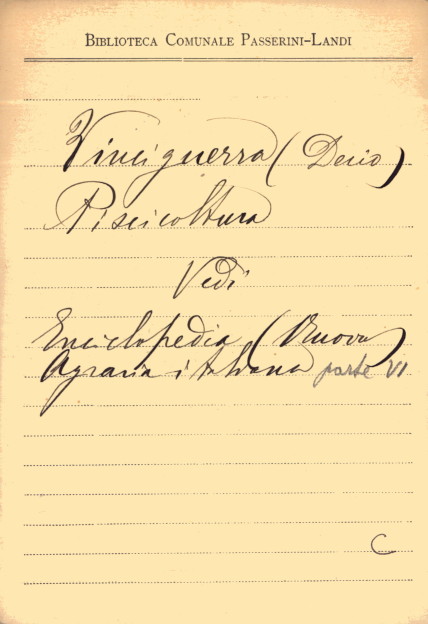 BIBLIOTECA COMUNALE PASSERINI-LANDI
Vinciguerra (Decio)
Piscicoltura
Vedi
Enciclopedia (Nuova)
Agraria italiana parte VI
C